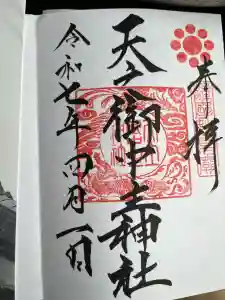 奉拝
天之御中主神社
令和七年四月一日